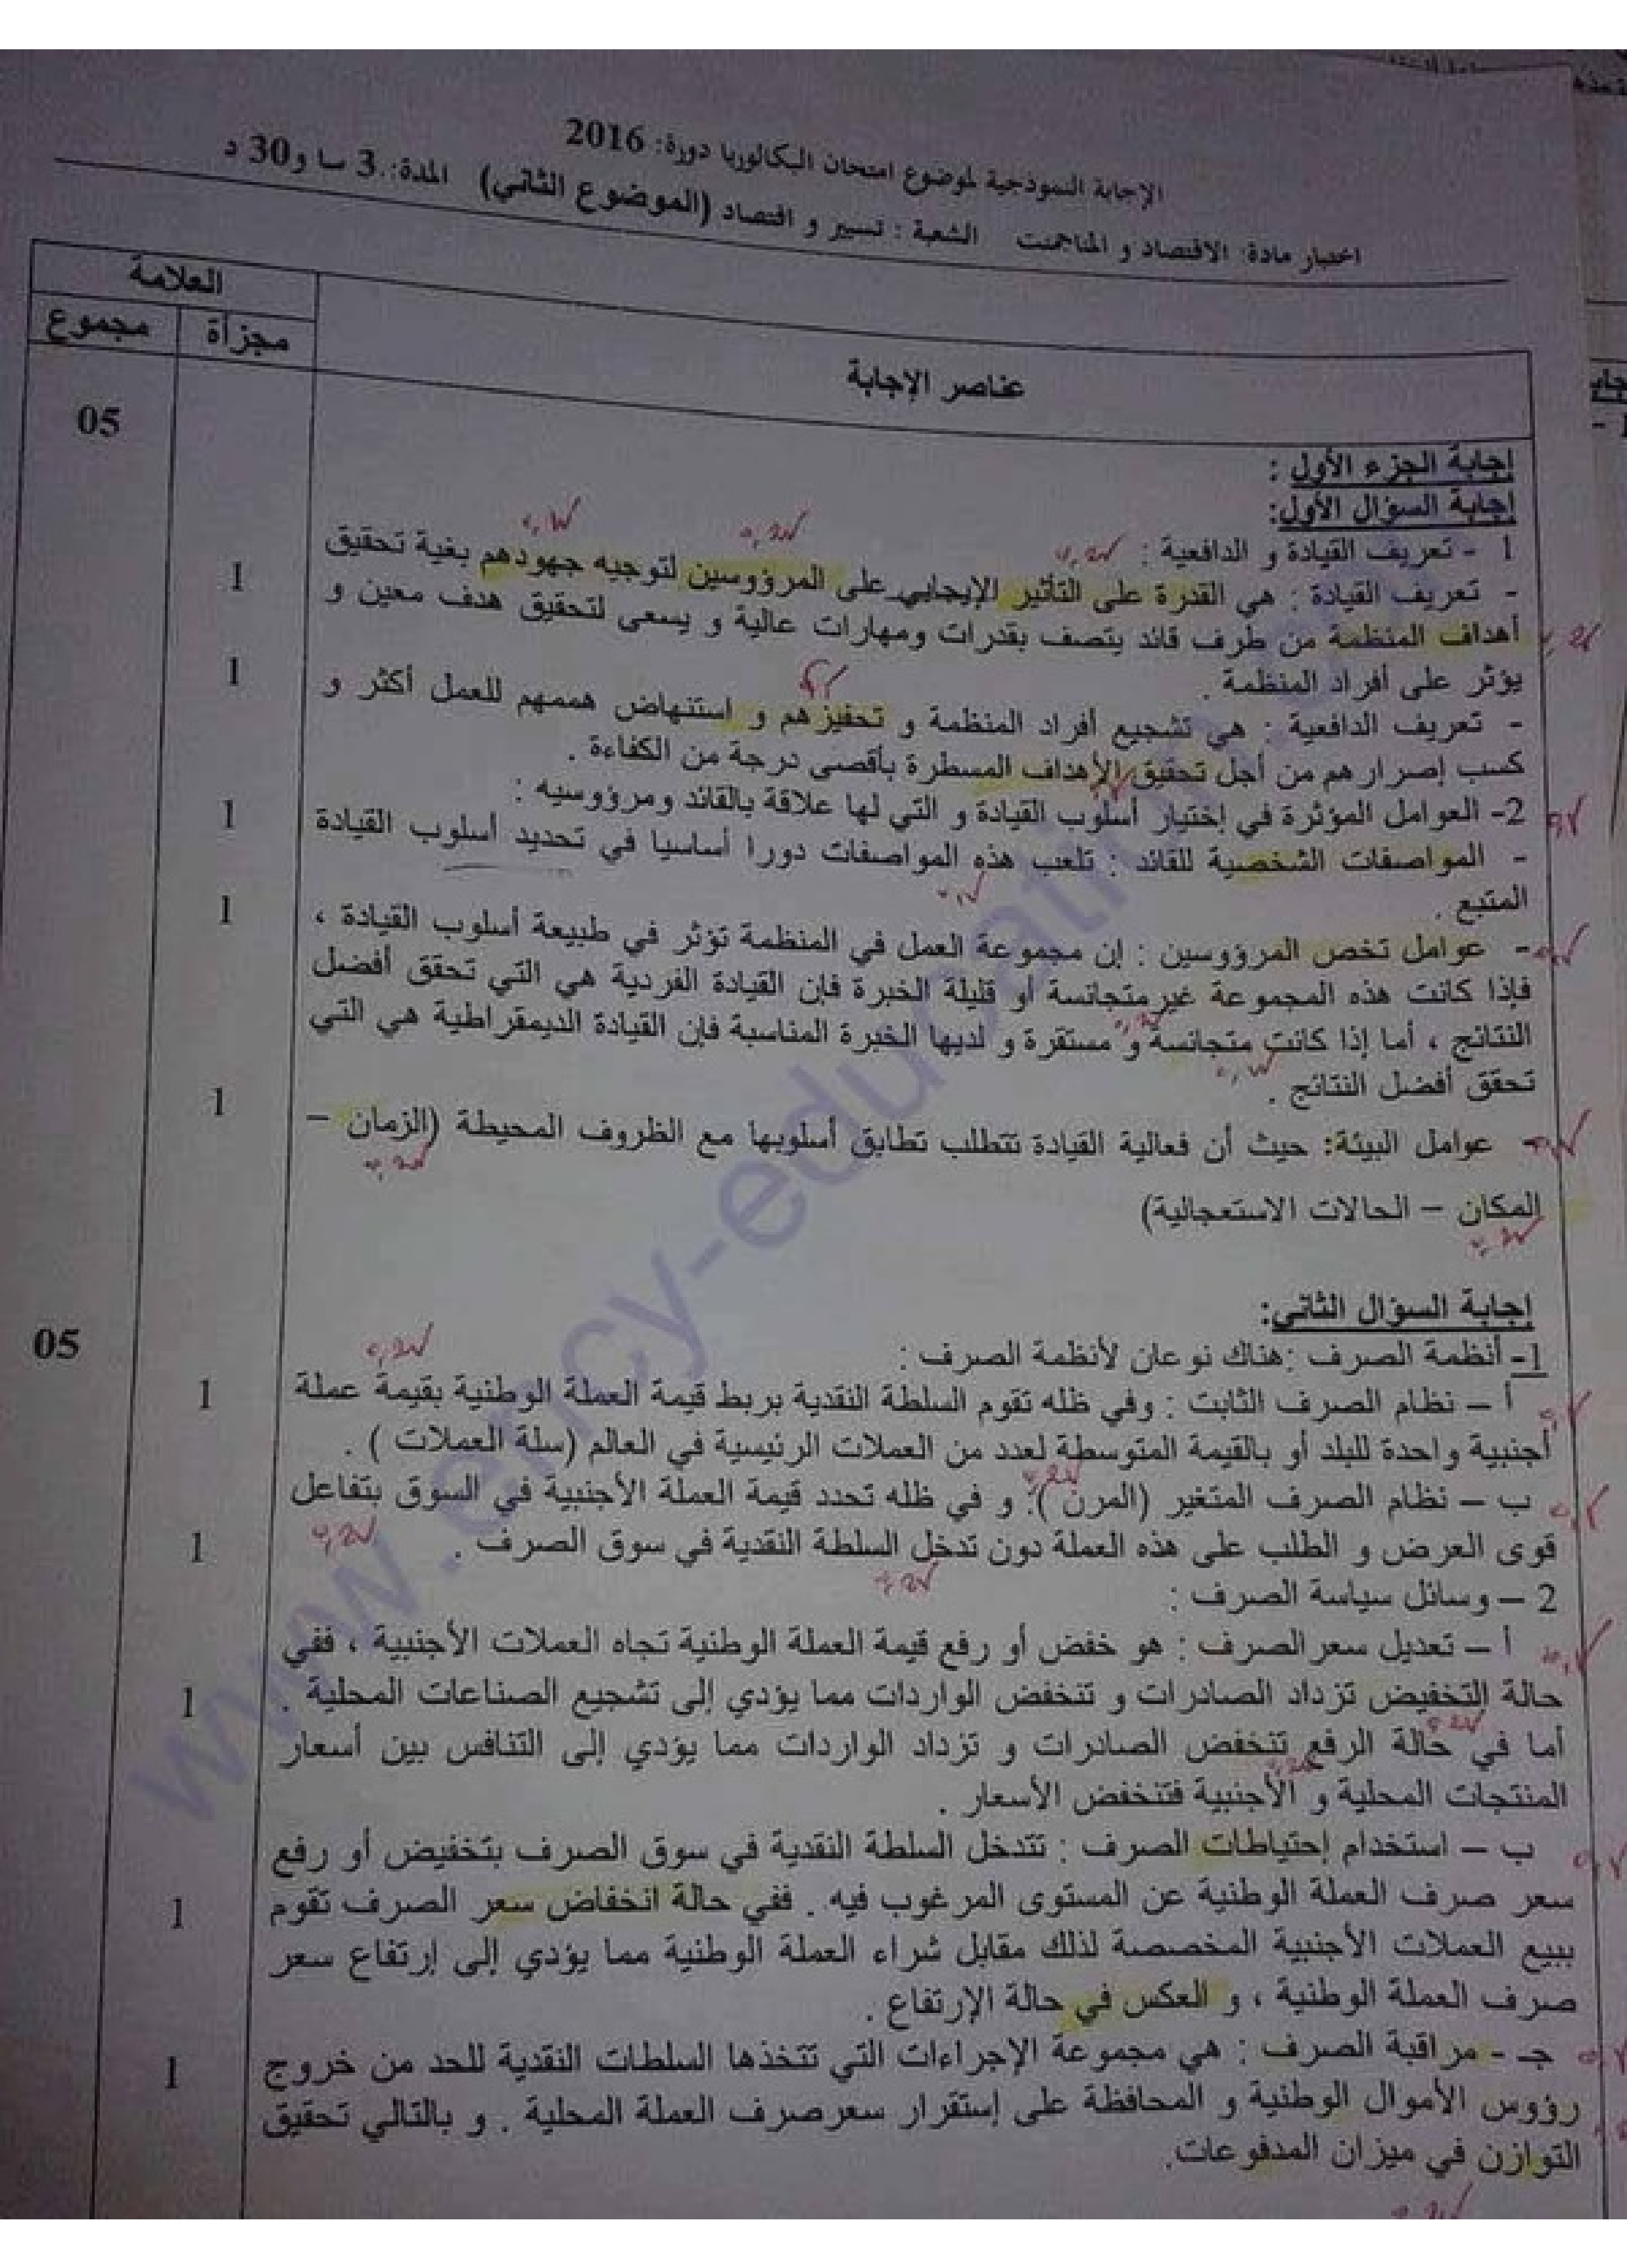 الإجابة النموذجية لموضوع امتحان البكالوريا دورة: 2016
اختبار مادة: الاقتصاد و المناجمنت الشعبة : تسيير و اقتصاد (الموضوع الثاني) المدة: 3 سا و30 د
العلامة
عناصر الإجابة
مجزأة
مجموع
05
إجابة الجزء الأول :
إجابة السؤال الأول:
1 - تعريف القيادة و الدافعية :
- تعريف القيادة : هي القدرة على التأثير الإيجابي على المرؤوسين لتوجيه جهودهم بغية تحقيق
1
أهداف المنظمة من طرف قائد يتصف بقدرات ومهارات عالية و يسعى لتحقيق هدف معين و
يؤثر على أفراد المنظمة .
- تعريف الدافعية : هي تشجيع أفراد المنظمة و تحفيزهم و استنهاض هممهم للعمل أكثر و
1
كسب إصرارهم من أجل تحقيق الأهداف المسطرة بأقصى درجة من الكفاءة .
2- العوامل المؤثرة في إختيار أسلوب القيادة و التي لها علاقة بالقائد ومرؤوسيه :
- المواصفات الشخصية للقائد : تلعب هذه المواصفات دورا أساسيا في تحديد أسلوب القيادة
1
المتبع .
- عوامل تخص المرؤوسين : إن مجموعة العمل في المنظمة تؤثر في طبيعة أسلوب القيادة ،
1
فإذا كانت هذه المجموعة غيرمتجانسة أو قليلة الخبرة فإن القيادة الفردية هي التي تحقق أفضل
النتائج ، أما إذا كانت متجانسة و مستقرة و لديها الخبرة المناسبة فإن القيادة الديمقراطية هي التي
تحقق أفضل النتائج .
- عوامل البيئة: حيث أن فعالية القيادة تتطلب تطابق أسلوبها مع الظروف المحيطة (الزمان –
1
المكان – الحالات الاستعجالية)
إجابة السؤال الثاني:
05
1- أنظمة الصرف :هناك نوعان لأنظمة الصرف :
أ – نظام الصرف الثابت : وفي ظله تقوم السلطة النقدية بربط قيمة العملة الوطنية بقيمة عملة
1
أجنبية واحدة للبلد أو بالقيمة المتوسطة لعدد من العملات الرئيسية في العالم (سلة العملات ) .
ب – نظام الصرف المتغير (المرن ): و في ظله تحدد قيمة العملة الأجنبية في السوق بتفاعل
قوى العرض و الطلب على هذه العملة دون تدخل السلطة النقدية في سوق الصرف .
1
2 – وسائل سياسة الصرف :
أ – تعديل سعرالصرف : هو خفض أو رفع قيمة العملة الوطنية تجاه العملات الأجنبية ، ففي
حالة التخفيض تزداد الصادرات و تنخفض الواردات مما يؤدي إلى تشجيع الصناعات المحلية .
1
أما في حالة الرفع تنخفض الصادرات و تزداد الواردات مما يؤدي إلى التنافس بين أسعار
المنتجات المحلية و الأجنبية فتنخفض الأسعار .
ب – استخدام إحتياطات الصرف : تتدخل السلطة النقدية في سوق الصرف بتخفيض أو رفع
سعر صرف العملة الوطنية عن المستوى المرغوب فيه . ففي حالة انخفاض سعر الصرف تقوم
1
ببيع العملات الأجنبية المخصصة لذلك مقابل شراء العملة الوطنية مما يؤدي إلى إرتفاع سعر
صرف العملة الوطنية ، و العكس في حالة الإرتفاع .
جـ - مراقبة الصرف : هي مجموعة الإجراءات التي تتخذها السلطات النقدية للحد من خروج
1
رؤوس الأموال الوطنية و المحافظة على إستقرار سعرصرف العملة المحلية . و بالتالي تحقيق
التوازن في ميزان المدفوعات.
www.ency-education